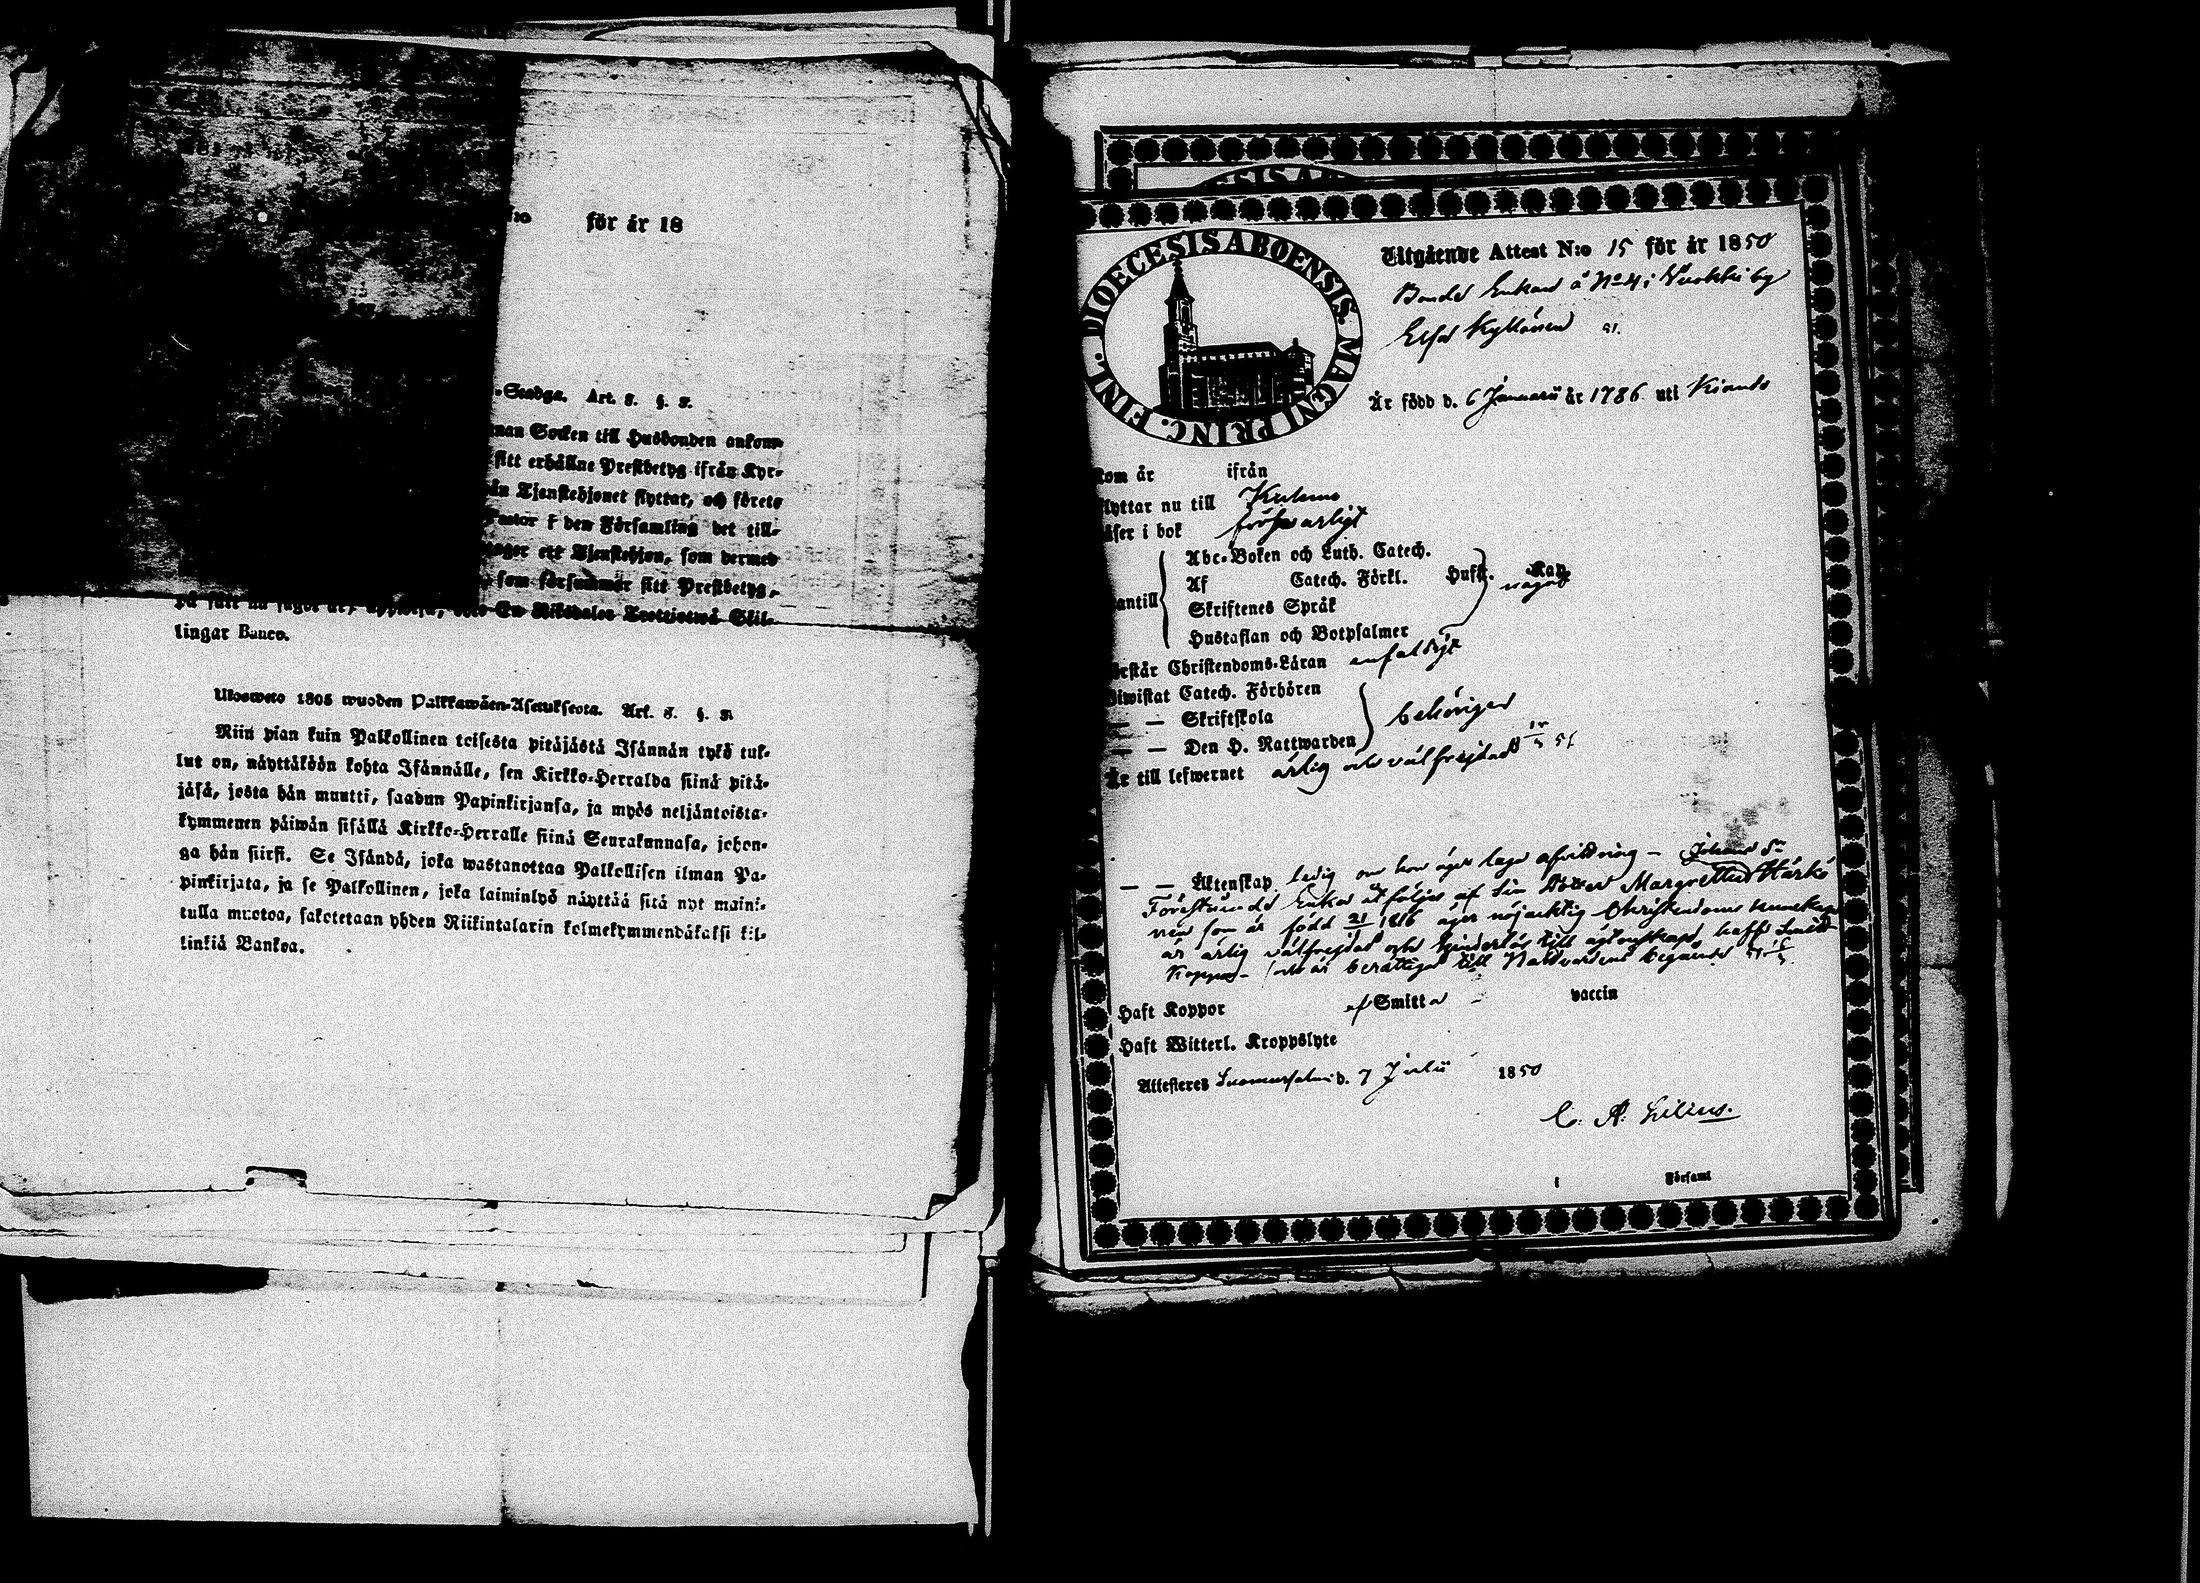 N:o för år 18
-Stadga. Art. 8. §. 8.
man Socken till Husbonden ankom-
sitt erhållne Prestbetyg ifrån Kyr-
ån Tjenstehjonet flyttat, och förete
Pastor i den Församling det till-
ett Tjenstehjon, som dermed
som försummar sitt Prestbetyg,
på sätt nu sagdt är, uppwisa, En Riksdaler Trettiotwå Skil-
lingar Banco.
Ulosweto 1805 wuoden Palkkawäen-Asetuksesta. Art. 8. §. 8.
Niin pian kuin Palkollinen toisesta pitäjästä Isännän tykö tul-
lut on, näyttäköön kohta Isännälle, sen Kirkko-Herralda siinä pitä-
jäsä, josta hän muutti, saadun Papinkirjansa, ja myös neljäntoista-
kymmenen päiwän sisällä Kirkko-Herralle siinä Seurakunnasa, johon-
ga hän siirsi. Se Isändä, joka wastanottaa Palkollisen ilman Pa-
pinkirjata, ja se Palkollinen, joka laiminlyö näyttää sitä nyt maini-
tulla muotoa, sakotetaan yhden Riikintalarin kolmekymmendäkaksi kil-
linkiä Bankoa.
DIOECESIS ABOENSIS. MAGNI PRINC. FINL.
Utgående Attest N:o 15 för år 1850
Bonde Enkan å No 4 i Vuokki by
Elsa Kyllönen
Är född d. 6 Januarii år 1786 uti Kianto
Kom år ifrån
flyttar nu till Kuhmo
läser i bok försvarligt
utantill Abc-Boken och Luth. Catech.
Af Catech. Förkl. Husfl. Kap
Skriftenes Språk något
Hustaflan och Botpsalmer
Förstår Christendoms-Läran enfaldigt
Biwistat Catech. Förhören
— — Skriftskola behörigen
— — Den H. Nattwarden
Är till lefwernet ärlig och välfrejdad
— — Äktenskap ledig om hon äger laga afvittring —
Förestående Enka åtföljes af sin Dotter Margretha Härkö
nen som är född 21 1816 äger nöjaktig Christendoms kunskap
är ärlig välfrejdad och hinderlös till äktenskap, haft Smitt
Koppor — och är berättigad till Nattvardens begående
Haft Koppor af Smitta vaccin
Haft Witterl. Kroppslyte
Attesteres Suomussalmi d. 7 Julii 1850
C. A. Lilius.
Församl